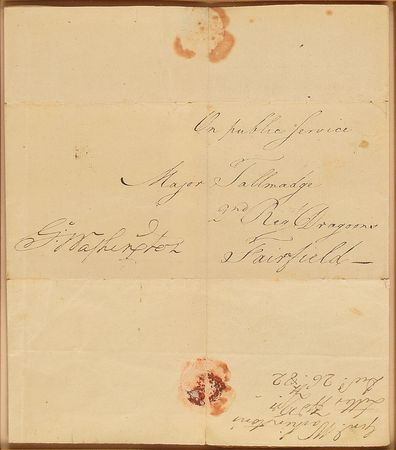 On public Service
Major Tallmadge
2nd Regt Dragoons
Go Washington
Fairfield
Genl. Washington's
Letter
26. 82